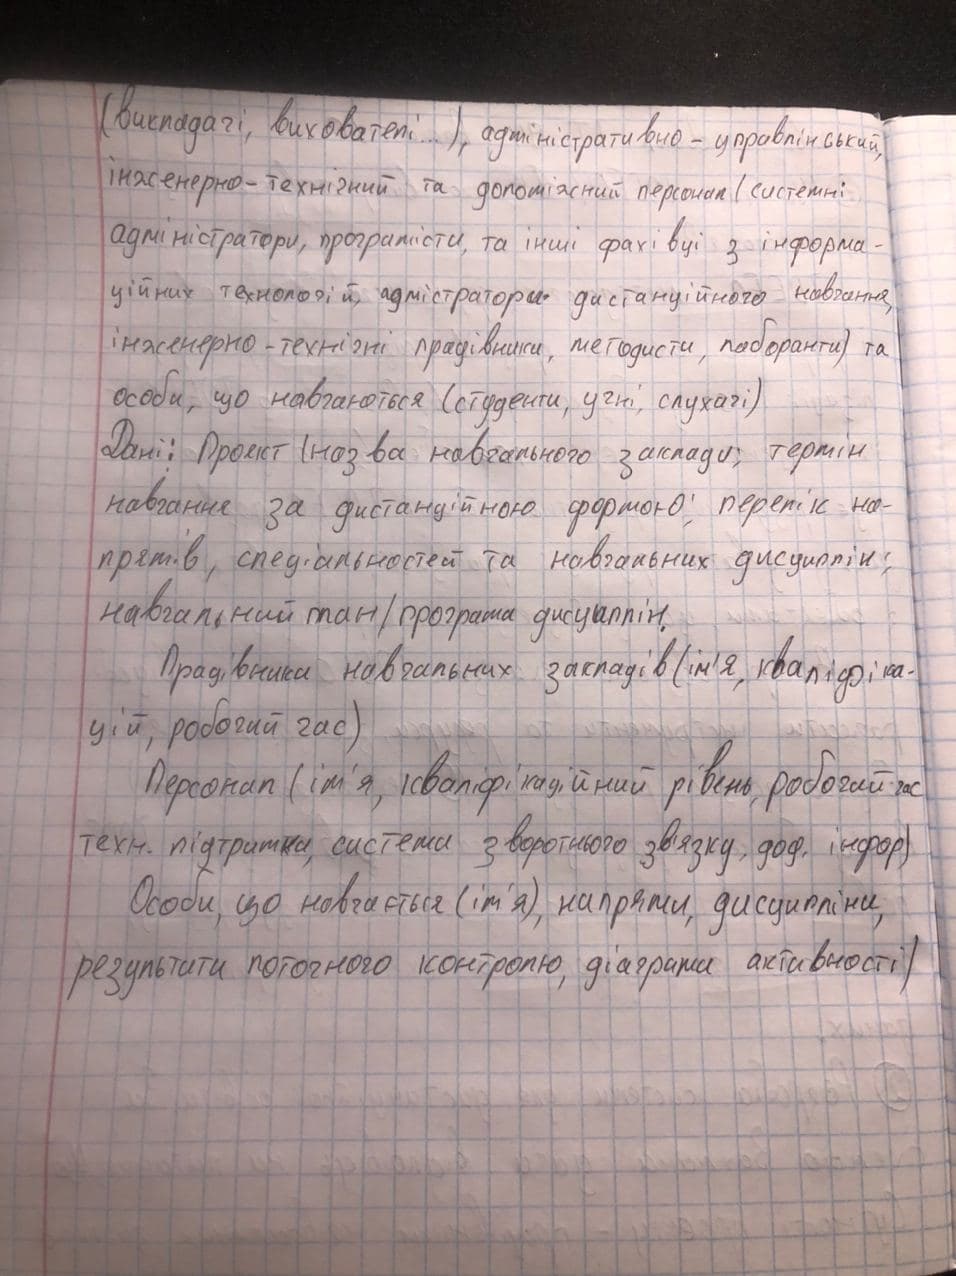 (викладачі, вихователі...), адміністративно-управлінський,
інженерно-технічний та допоміжний персонал (системні
адміністратори, програмісти, та інші фахівці з інформа-
ційних технологій, адміністратори дистанційного навчання,
інженерно-технічні працівники, методисти, лаборанти) та
особи, що навчаються (студенти, учні, слухачі)
Дані: Проєкт (назва навчального закладу; термін
навчання за дистанційною формою; перелік на-
прямів, спеціальностей та навчальних дисциплін;
навчальний план/програма дисциплін.
Працівники навчальних закладів (ім'я, кваліфіка-
цій, робочий час)
Персонал (ім'я, кваліфікаційний рівень, робочий час
техн. підтримки, система зворотнього зв'язку, дод. інфор)
Особи, що навчається (ім'я), напрями, дисципліни,
результати поточного контролю, діаграма активності)